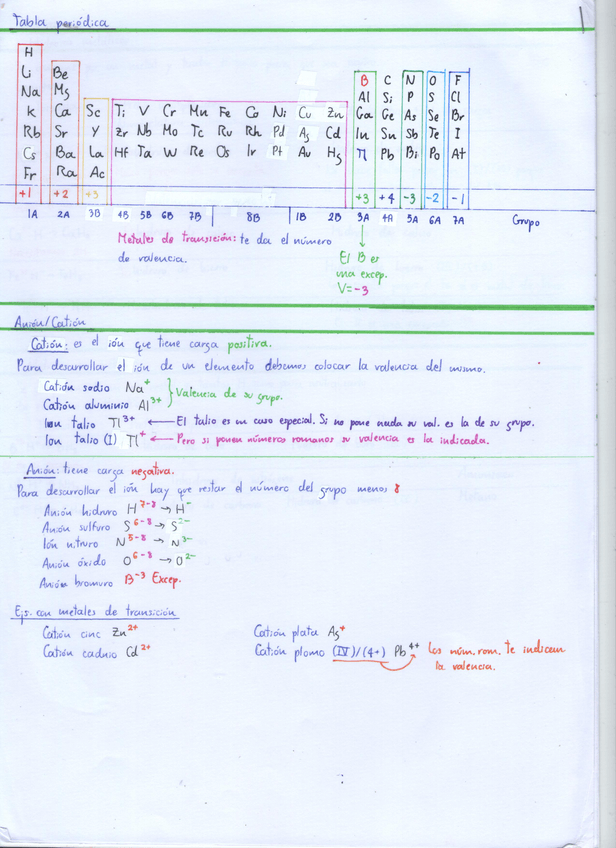 1
Tabla periódica
H
Li Be B C N O F
Na Mg Al Si P S Cl
K Ca Sc Ti V Cr Mn Fe Co Ni Cu Zn Ga Ge As Se Br
Rb Sr Y Zr Nb Mo Tc Ru Rh Pd Ag Cd In Sn Sb Te I
Cs Ba La Hf Ta W Re Os Ir Pt Au Hg Tl Pb Bi Po At
Fr Ra Ac
+1 +2 +3 +3 +4 -3 -2 -1
1A 2A 3B 4B 5B 6B 7B 8B 1B 2B 3A 4A 5A 6A 7A Grupo
Metales de transición: te da el número
de valencia.
El B es
una excep.
V=-3
Anión/Catión
Catión: es el ión que tiene carga positiva.
Para desarrollar el ión de un elemento debemos colocar la valencia del mismo.
Catión sodio Na+
Catión aluminio Al3+ } Valencia de su grupo.
Ion talio Tl3+ ← El talio es un caso especial. Si no pone nada su val. es la de su grupo.
Ion talio (I) Tl+ ← Pero si ponen números romanos su valencia es la indicada.
Anión: tiene carga negativa.
Para desarrollar el ión hay que restar el número del grupo menos 8
Anión hidruro H7-8 → H-
Anión sulfuro S6-8 → S2-
Ión nitruro N5-8 → N3-
Anión óxido O6-8 → O2-
Anión bromuro B-3 Excep.
Ejs. con metales de transición
Catión cinc Zn2+ Catión plata Ag+
Catión cadnio Cd2+ Catión plomo (IV)/(4+) Pb4+ Los núm. rom. te indican
la valencia.